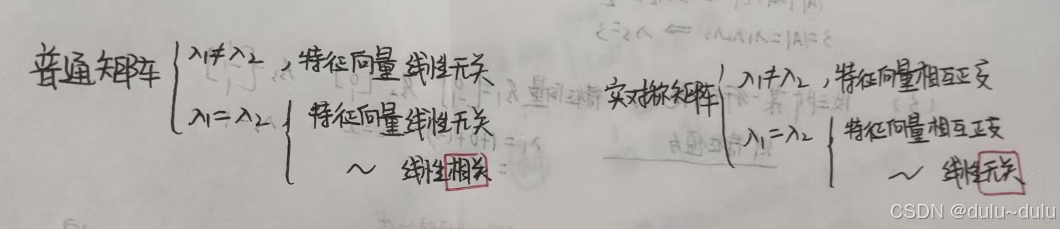 普通矩阵
λ₁≠λ₂，特征向量线性无关
λ₁=λ₂
特征向量线性无关
～ 线性相关
实对称矩阵
λ₁≠λ₂，特征向量相互正交
λ₁=λ₂
特征向量相互正交
～ 线性无关
CSDN @dulu~dulu